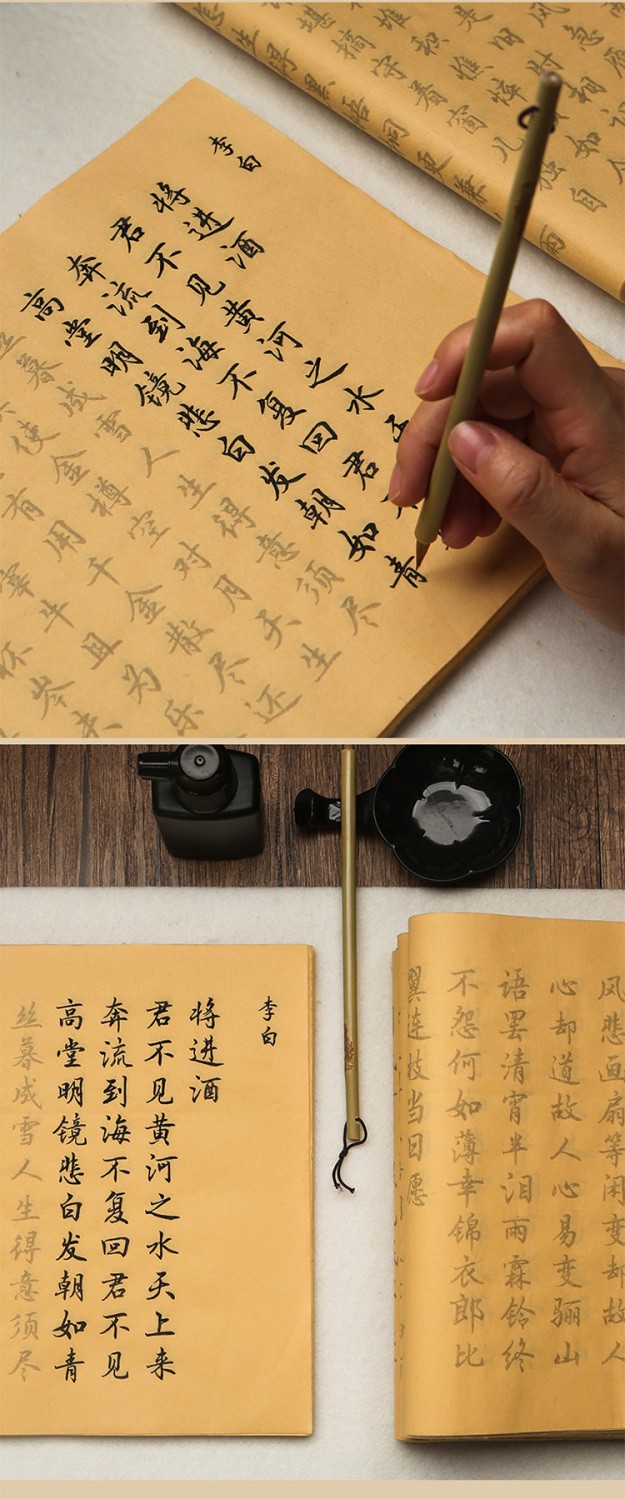 风急雁
是旧时相识
堆积憔悴如
堪摘守着窗儿独自
怎生得黑梧桐更兼雨
李白
将进酒
君不见黄河之水
奔流到海不复回君如
高堂明镜悲白发朝如青
丝暮成雪人生得意须尽
使金樽空对月天生
有用千金散尽还
宰牛且为乐
杯岑夫
李白
将进酒
君不见黄河之水天上来
奔流到海不复回君不见
高堂明镜悲白发朝如青
丝暮成雪人生得意须尽
风悲画扇等闲变却故人
心却道故人心易变骊山
语罢清宵半泪雨霖铃终
不怨何如薄幸锦衣郎比
翼连枝当日愿